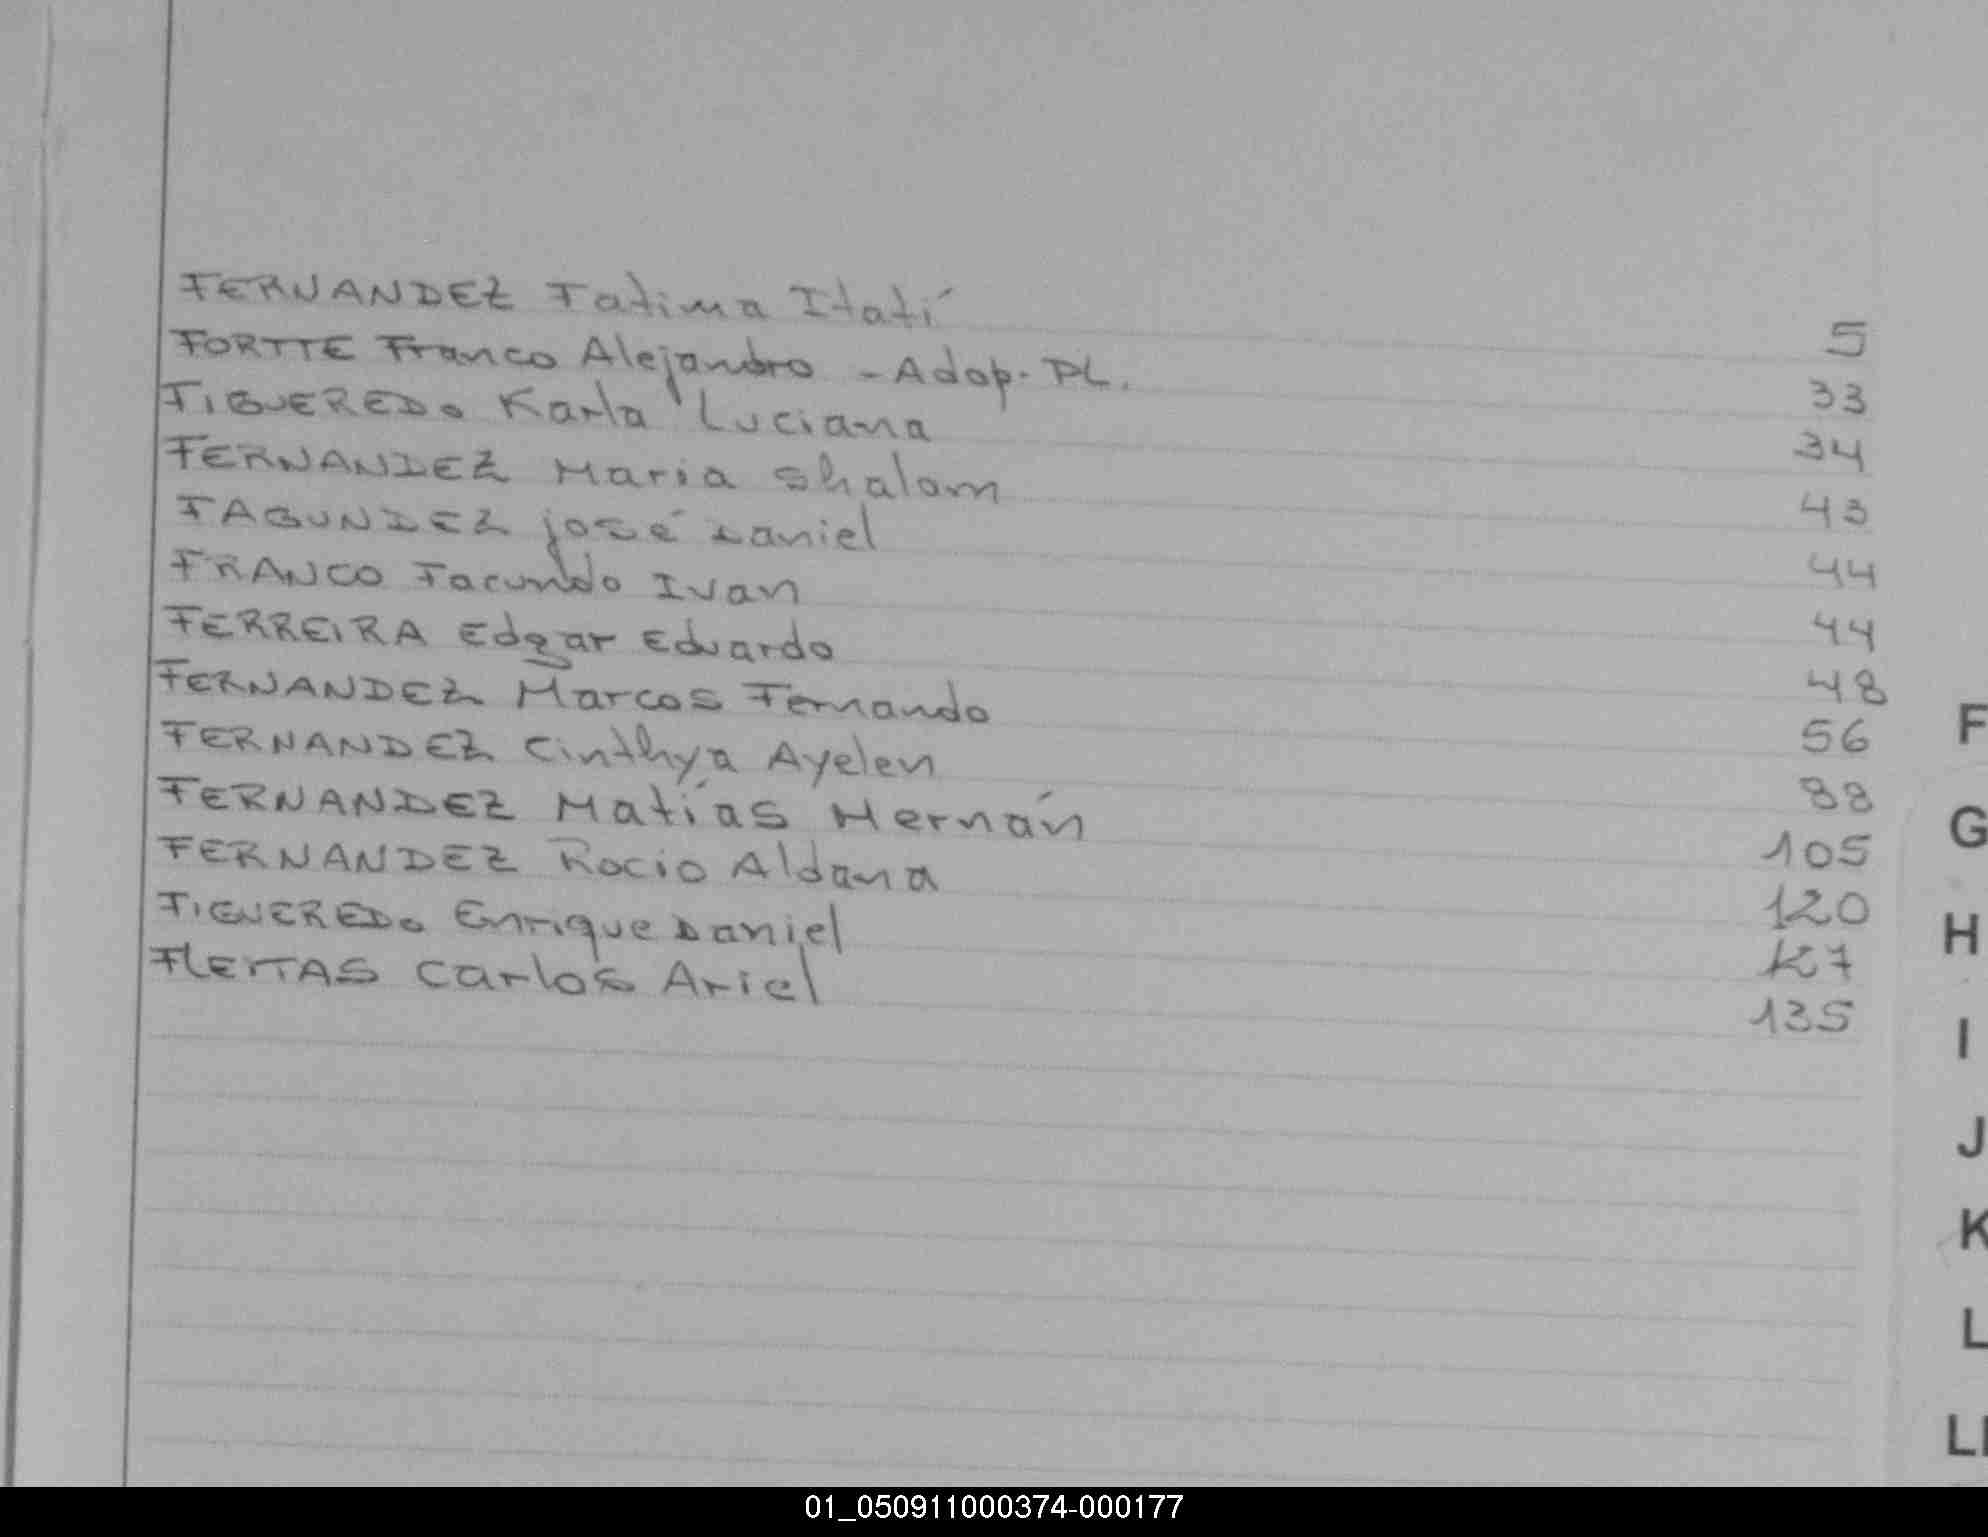 FERNANDEZ Fatima Itatí 5
FORTTE Franco Alejandro - Adop. PL. 33
FIGUEREDo Karla Luciana 34
FERNANDEZ Maria Shalom 43
FAGUNDEZ josé Daniel 44
FRANCO Facundo Ivan 44
FERREIRA Edgar Eduardo 48
FERNANDEZ Marcos Fernando 56
FERNANDEZ Cinthya Ayelen 88
FERNANDEZ Matías Hernán 105
FERNANDEZ Rocio Aldana 120
FIGUEREDo Enrique Daniel 127
FLEITAS Carlos Ariel 135
F
G
H
I
J
K
L
Ll
01_050911000374-000177